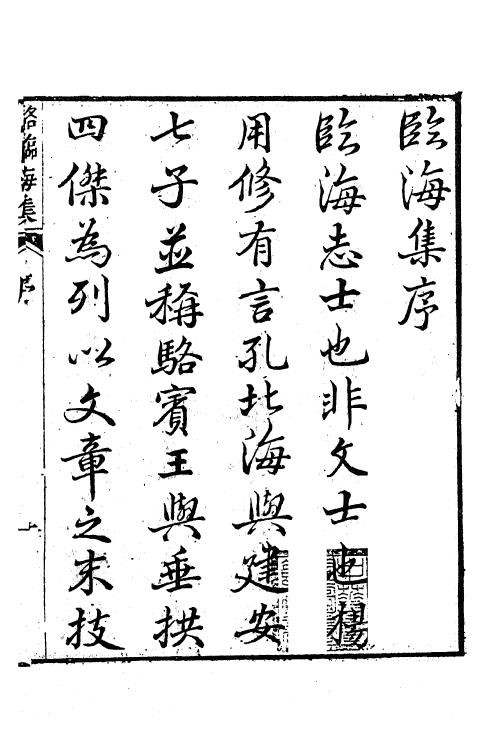 臨海集序
臨海志士也非文士也楊
用修有言孔北海與建安
七子並稱駱賓王與垂拱
四傑為列以文章之末技
駱臨海集
序
上